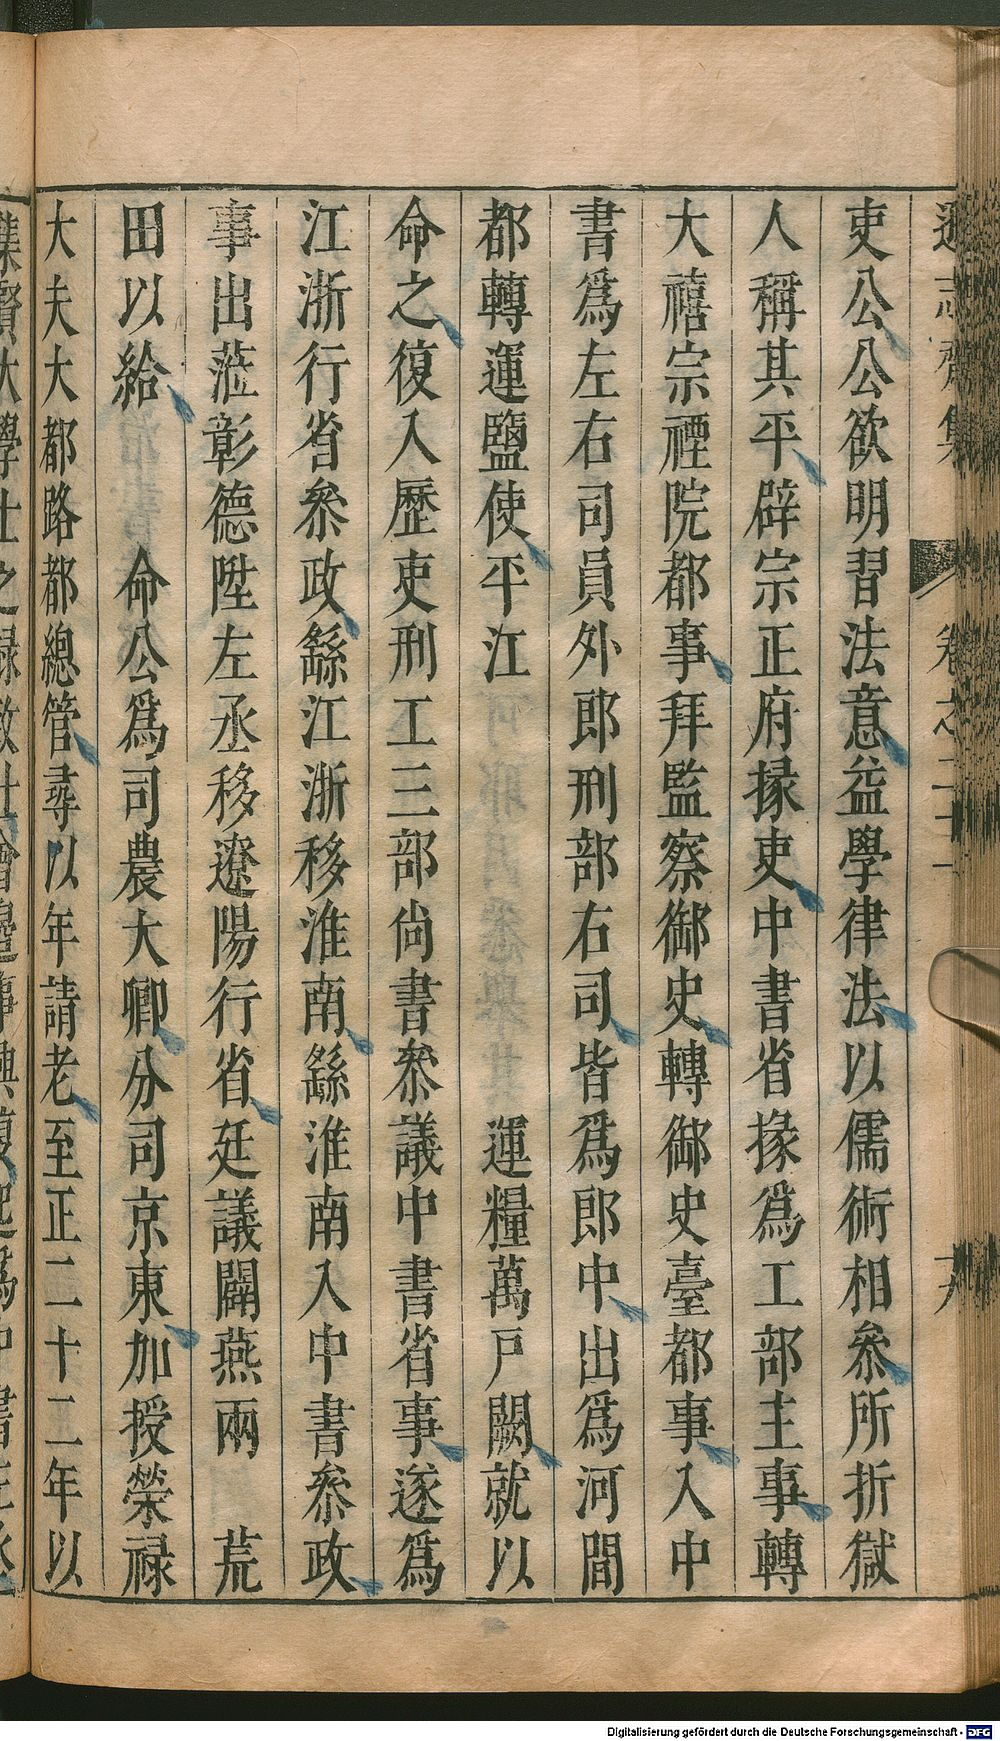 吏公公欲明習法意益學律法以儒術相叅所折獄
人稱其平辟宗正府掾吏中書省掾爲工部主事轉
大禧宗禋院都事拜監察御史轉御史臺都事入中
書爲左右司員外郎刑部右司皆爲郎中出爲河間
都轉運鹽使平江運糧萬戸闕就以
命之復入歷吏刑工三部尙書叅議中書省事遂爲
江浙行省叅政繇江浙移淮南繇淮南入中書叅政
事出蒞彰德陞左丞移遼陽行省廷議闢燕兩荒
田以給命公爲司農大卿分司京東加授榮禄
大夫大都路都總管尋以年請老至正二十二年以
Digitalisierung gefördert durch die Deutsche Forschungsgemeinschaft - DFG